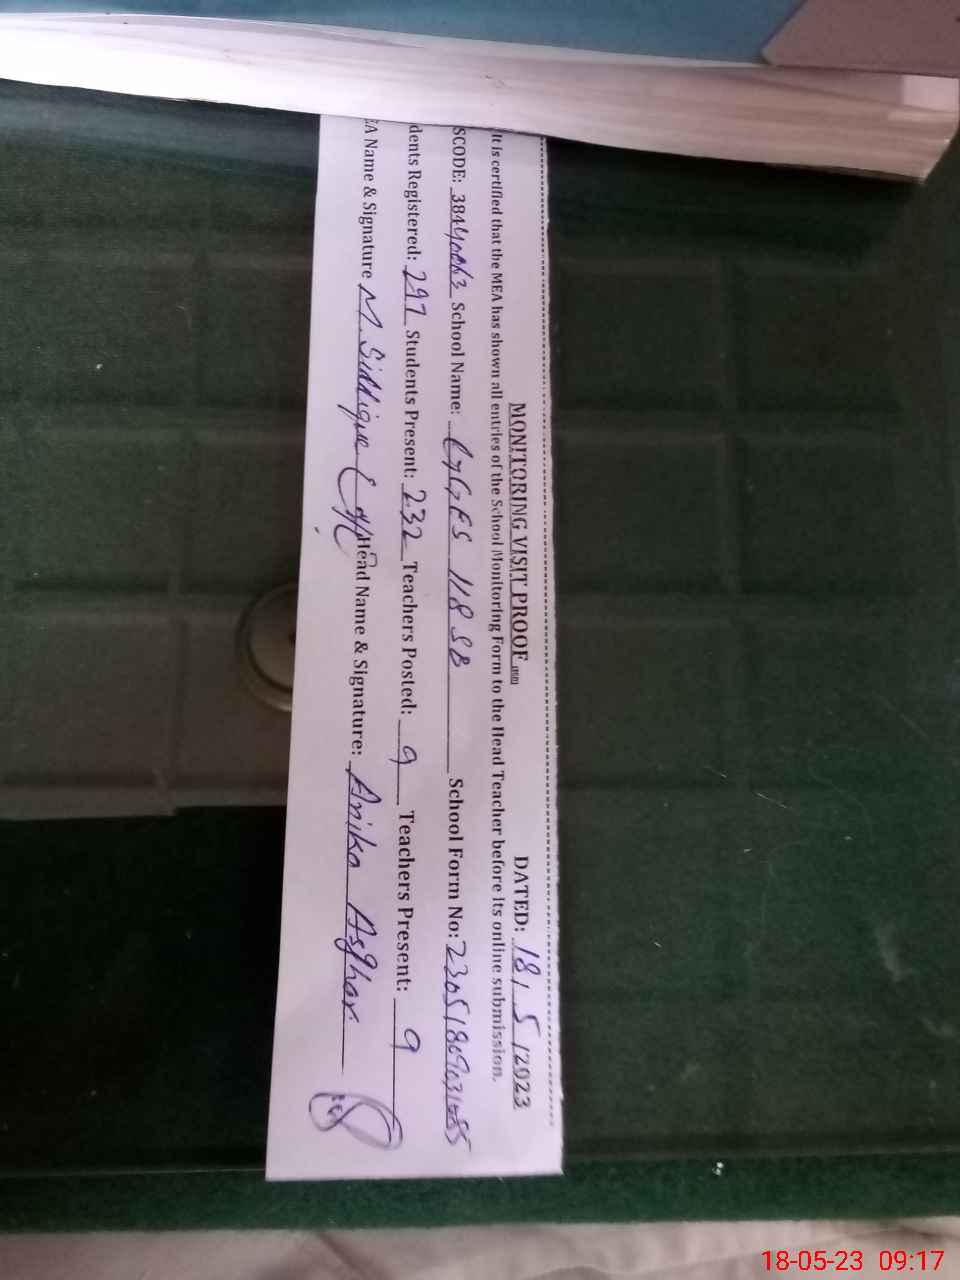 MONITORING VISIT PROOF DATED: 18/5/2023
It is certified that the MEA has shown all entries of the School Monitoring Form to the Head Teacher before its online submission.
SCODE: School Name: 118 SB School Form No:
dents Registered: 297 Students Present: 232 Teachers Posted: 9 Teachers Present: 9
EA Name & Signature M. Siddique Head Name & Signature: Anika Asghar
18-05-23 09:17